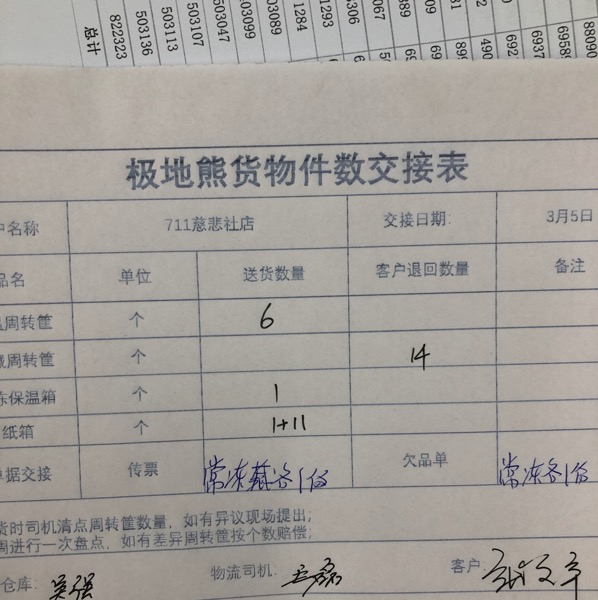 总计
822323
503136
503113
503107
503047
503099
503089
1284
1293
306
067
极地熊货物件数交接表
户名称 711慈悲社店 交接日期: 3月5日
品名 单位 送货数量 客户退回数量 备注
周转筐 个 6
藏周转筐 个 14
冻保温箱 个 1
纸箱 个 1+11
单据交接 传票 常冻藏各1份 欠品单 常冻各1份
货时司机清点周转筐数量，如有异议现场提出；
周进行一次盘点，如有差异周转筐按个数赔偿；
仓库: 吴强 物流司机: 王磊 客户: